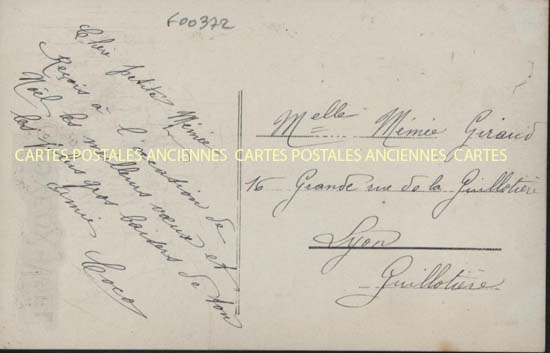 F00372
Chère petite Mémée
Reçois à l'occasion de
Noël les meilleurs vœux et
les plus gros baisers de ton
amie Coco
Melle Mémée Giraud
16 Grande rue de la Guillotière
Lyon
Guillotière
CARTES POSTALES ANCIENNES CARTES POSTALES ANCIENNES CARTES POSTALES ANCIENNES